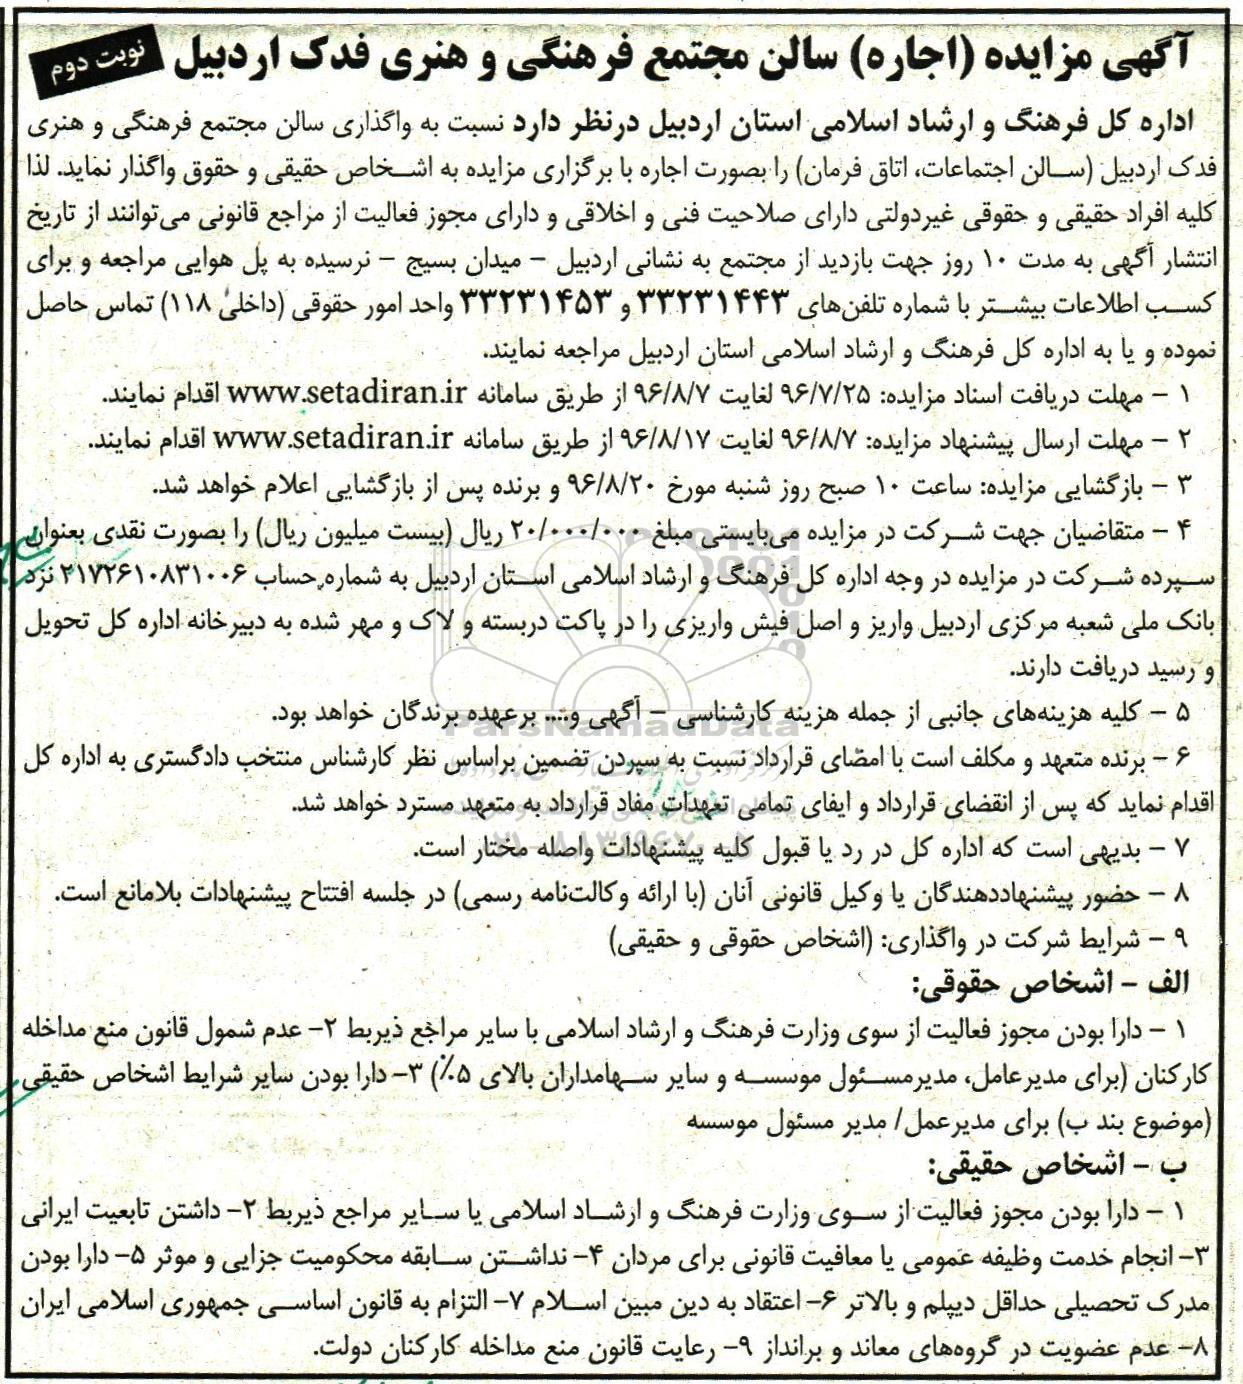 آگهی مزایده (اجاره) سالن مجتمع فرهنگی و هنری فدک اردبیل
نوبت دوم
اداره کل فرهنگ و ارشاد اسلامی استان اردبیل درنظر دارد نسبت به واگذاری سالن مجتمع فرهنگی و هنری
فدک اردبیل (سالن اجتماعات، اتاق فرمان) را بصورت اجاره با برگزاری مزایده به اشخاص حقیقی و حقوق واگذار نماید. لذا
کلیه افراد حقیقی و حقوقی غیردولتی دارای صلاحیت فنی و اخلاقی و دارای مجوز فعالیت از مراجع قانونی می‌توانند از تاریخ
انتشار آگهی به مدت ۱۰ روز جهت بازدید از مجتمع به نشانی اردبیل – میدان بسیج – نرسیده به پل هوایی مراجعه و برای
کسب اطلاعات بیشتر با شماره تلفن‌های ۳۳۲۳۱۴۴۳ و ۳۳۲۳۱۴۵۳ واحد امور حقوقی (داخلی ۱۱۸) تماس حاصل
نموده و یا به اداره کل فرهنگ و ارشاد اسلامی استان اردبیل مراجعه نمایند.
۱ – مهلت دریافت اسناد مزایده: ۹۶/۷/۲۵ لغایت ۹۶/۸/۷ از طریق سامانه www.setadiran.ir اقدام نمایند.
۲ – مهلت ارسال پیشنهاد مزایده: ۹۶/۸/۷ لغایت ۹۶/۸/۱۷ از طریق سامانه www.setadiran.ir اقدام نمایند.
۳ – بازگشایی مزایده: ساعت ۱۰ صبح روز شنبه مورخ ۹۶/۸/۲۰ و برنده پس از بازگشایی اعلام خواهد شد.
۴ – متقاضیان جهت شرکت در مزایده می‌بایستی مبلغ ۲۰/۰۰۰/۰۰۰ ریال (بیست میلیون ریال) را بصورت نقدی بعنوان
سپرده شرکت در مزایده در وجه اداره کل فرهنگ و ارشاد اسلامی استان اردبیل به شماره حساب ۲۱۷۲۶۱۰۸۳۱۰۰۶ نزد
بانک ملی شعبه مرکزی اردبیل واریز و اصل فیش واریزی را در پاکت دربسته و لاک و مهر شده به دبیرخانه اداره کل تحویل
و رسید دریافت دارند.
۵ – کلیه هزینه‌های جانبی از جمله هزینه کارشناسی – آگهی و.... برعهده برندگان خواهد بود.
ParsNamadData
۶ – برنده متعهد و مکلف است با امضای قرارداد نسبت به سپردن تضمین براساس نظر کارشناس منتخب دادگستری به اداره کل
اقدام نماید که پس از انقضای قرارداد و ایفای تمامی تعهدات مفاد قرارداد به متعهد مسترد خواهد شد.
۷ – بدیهی است که اداره کل در رد یا قبول کلیه پیشنهادات واصله مختار است.
۸ – حضور پیشنهاددهندگان یا وکیل قانونی آنان (با ارائه وکالت‌نامه رسمی) در جلسه افتتاح پیشنهادات بلامانع است.
۹ – شرایط شرکت در واگذاری: (اشخاص حقوقی و حقیقی)
الف – اشخاص حقوقی:
۱ – دارا بودن مجوز فعالیت از سوی وزارت فرهنگ و ارشاد اسلامی با سایر مراجع ذیربط ۲– عدم شمول قانون منع مداخله
کارکنان (برای مدیرعامل، مدیرمسئول موسسه و سایر سهامداران بالای ۵٪) ۳– دارا بودن سایر شرایط اشخاص حقیقی
(موضوع بند ب) برای مدیرعمل/ مدیر مسئول موسسه
ب – اشخاص حقیقی:
۱ – دارا بودن مجوز فعالیت از سوی وزارت فرهنگ و ارشاد اسلامی یا سایر مراجع ذیربط ۲– داشتن تابعیت ایرانی
۳– انجام خدمت وظیفه عمومی یا معافیت قانونی برای مردان ۴– نداشتن سابقه محکومیت جزایی و موثر ۵– دارا بودن
مدرک تحصیلی حداقل دیپلم و بالاتر ۶– اعتقاد به دین مبین اسلام ۷– التزام به قانون اساسی جمهوری اسلامی ایران
۸– عدم عضویت در گروه‌های معاند و برانداز ۹– رعایت قانون منع مداخله کارکنان دولت.